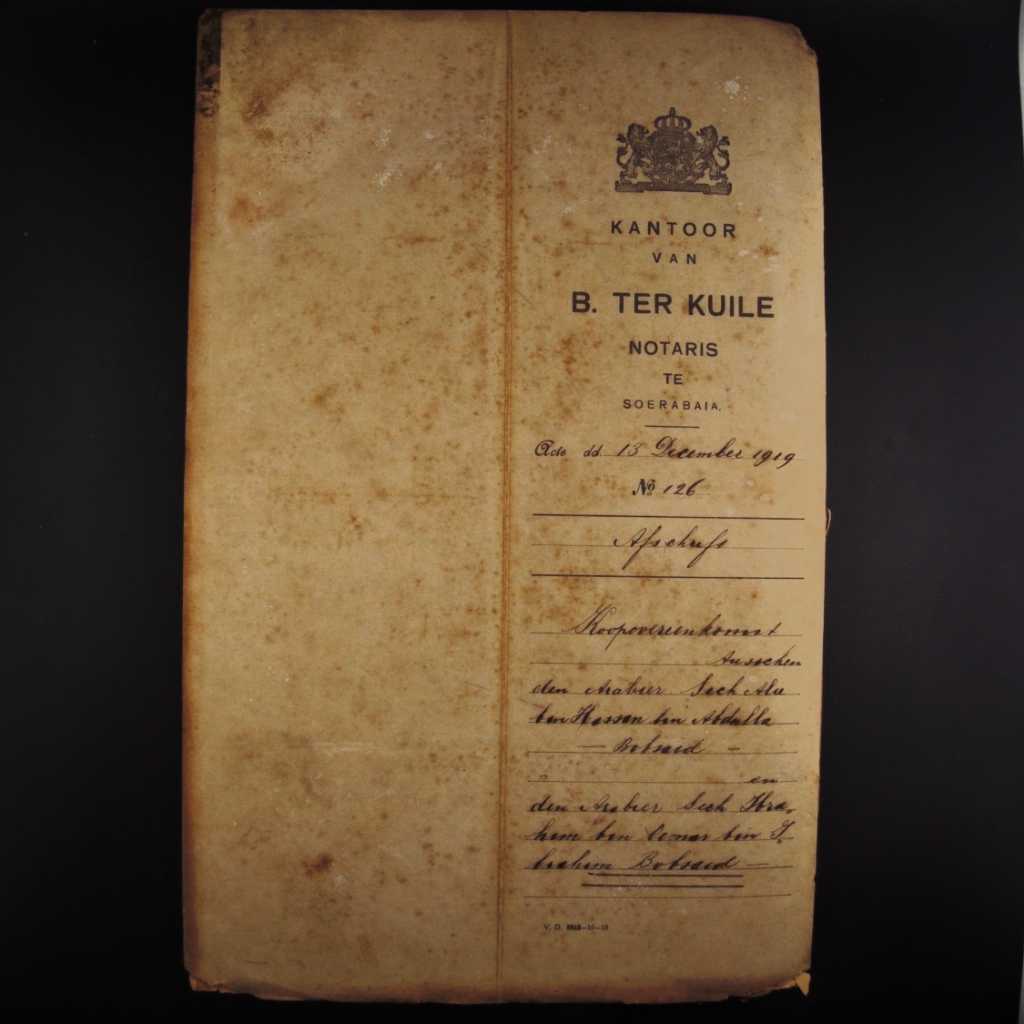 KANTOOR
VAN
B. TER KUILE
NOTARIS
TE
SOERABAIA.
Acte dd. 15 December 1919
No 126
Afschrift
Koopovereenkomst
tusschen
den Arabier Sech Alie
bin Hassan bin Abdulla
— Bobsaid —
en
den Arabier Sech Ibra-
him bin Oemar bin I-
brahim Bobsaid —
V. D.